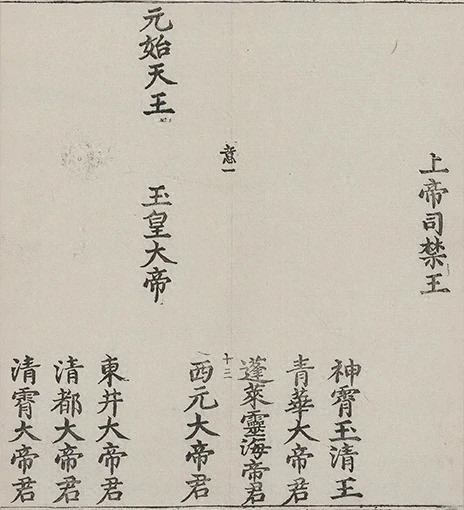 上帝司禁王
神霄玉清王
青華大帝君
蓬萊靈海帝君
意一
十三
西元大帝君
元始天王
玉皇大帝
東井大帝君
清都大帝君
清霄大帝君